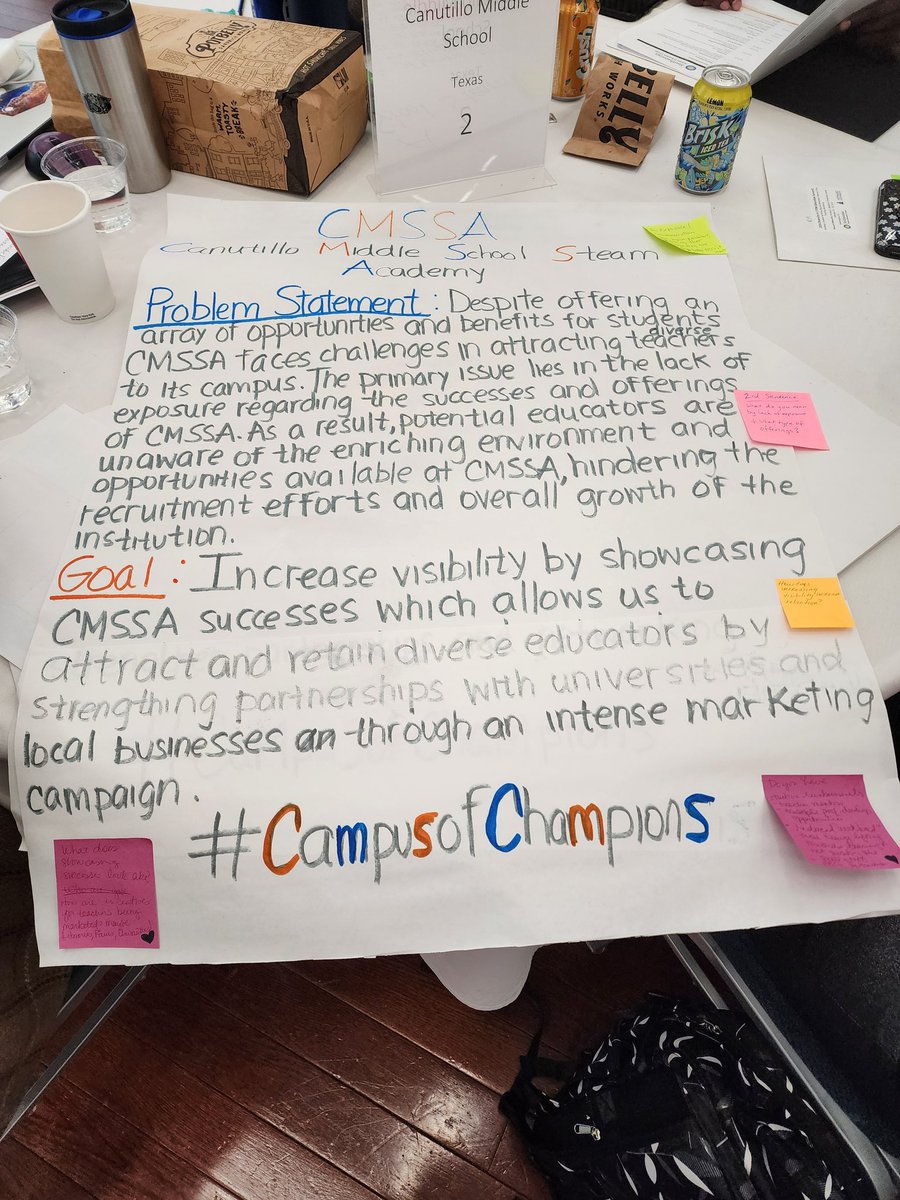 Canutillo Middle
School
Texas
2
POTBELLY
WARM
TOASTY
BELLY
WORKS
Crush
LEMON
BRISK
ICED TEA
CMSSA
Canutillo Middle School Steam
Academy
Problem Statement: Despite offering an
array of opportunities and benefits for students
diverse
CMSSA faces challenges in attracting teachers
to its campus. The primary issue lies in the lack of
exposure regarding the successes and offerings
of CMSSA. As a result, potential educators are
unaware of the enriching environment and
opportunities available at CMSSA, hindering the
recruitment efforts and overall growth of the
institution.
2nd Sentence
what do you mean
by lack of exposure
& what type of
offerings?
Goal: Increase visibility by showcasing
CMSSA successes which allows us to
attract and retain diverse educators by
strengthing partnerships with universities and
local businesses an through an intense marketing
campaign.
How does
increasing
visibility increase
retention?
#CampusofChampions
What does
showcasing
success look like?
for teachers being
marketed
Do you have